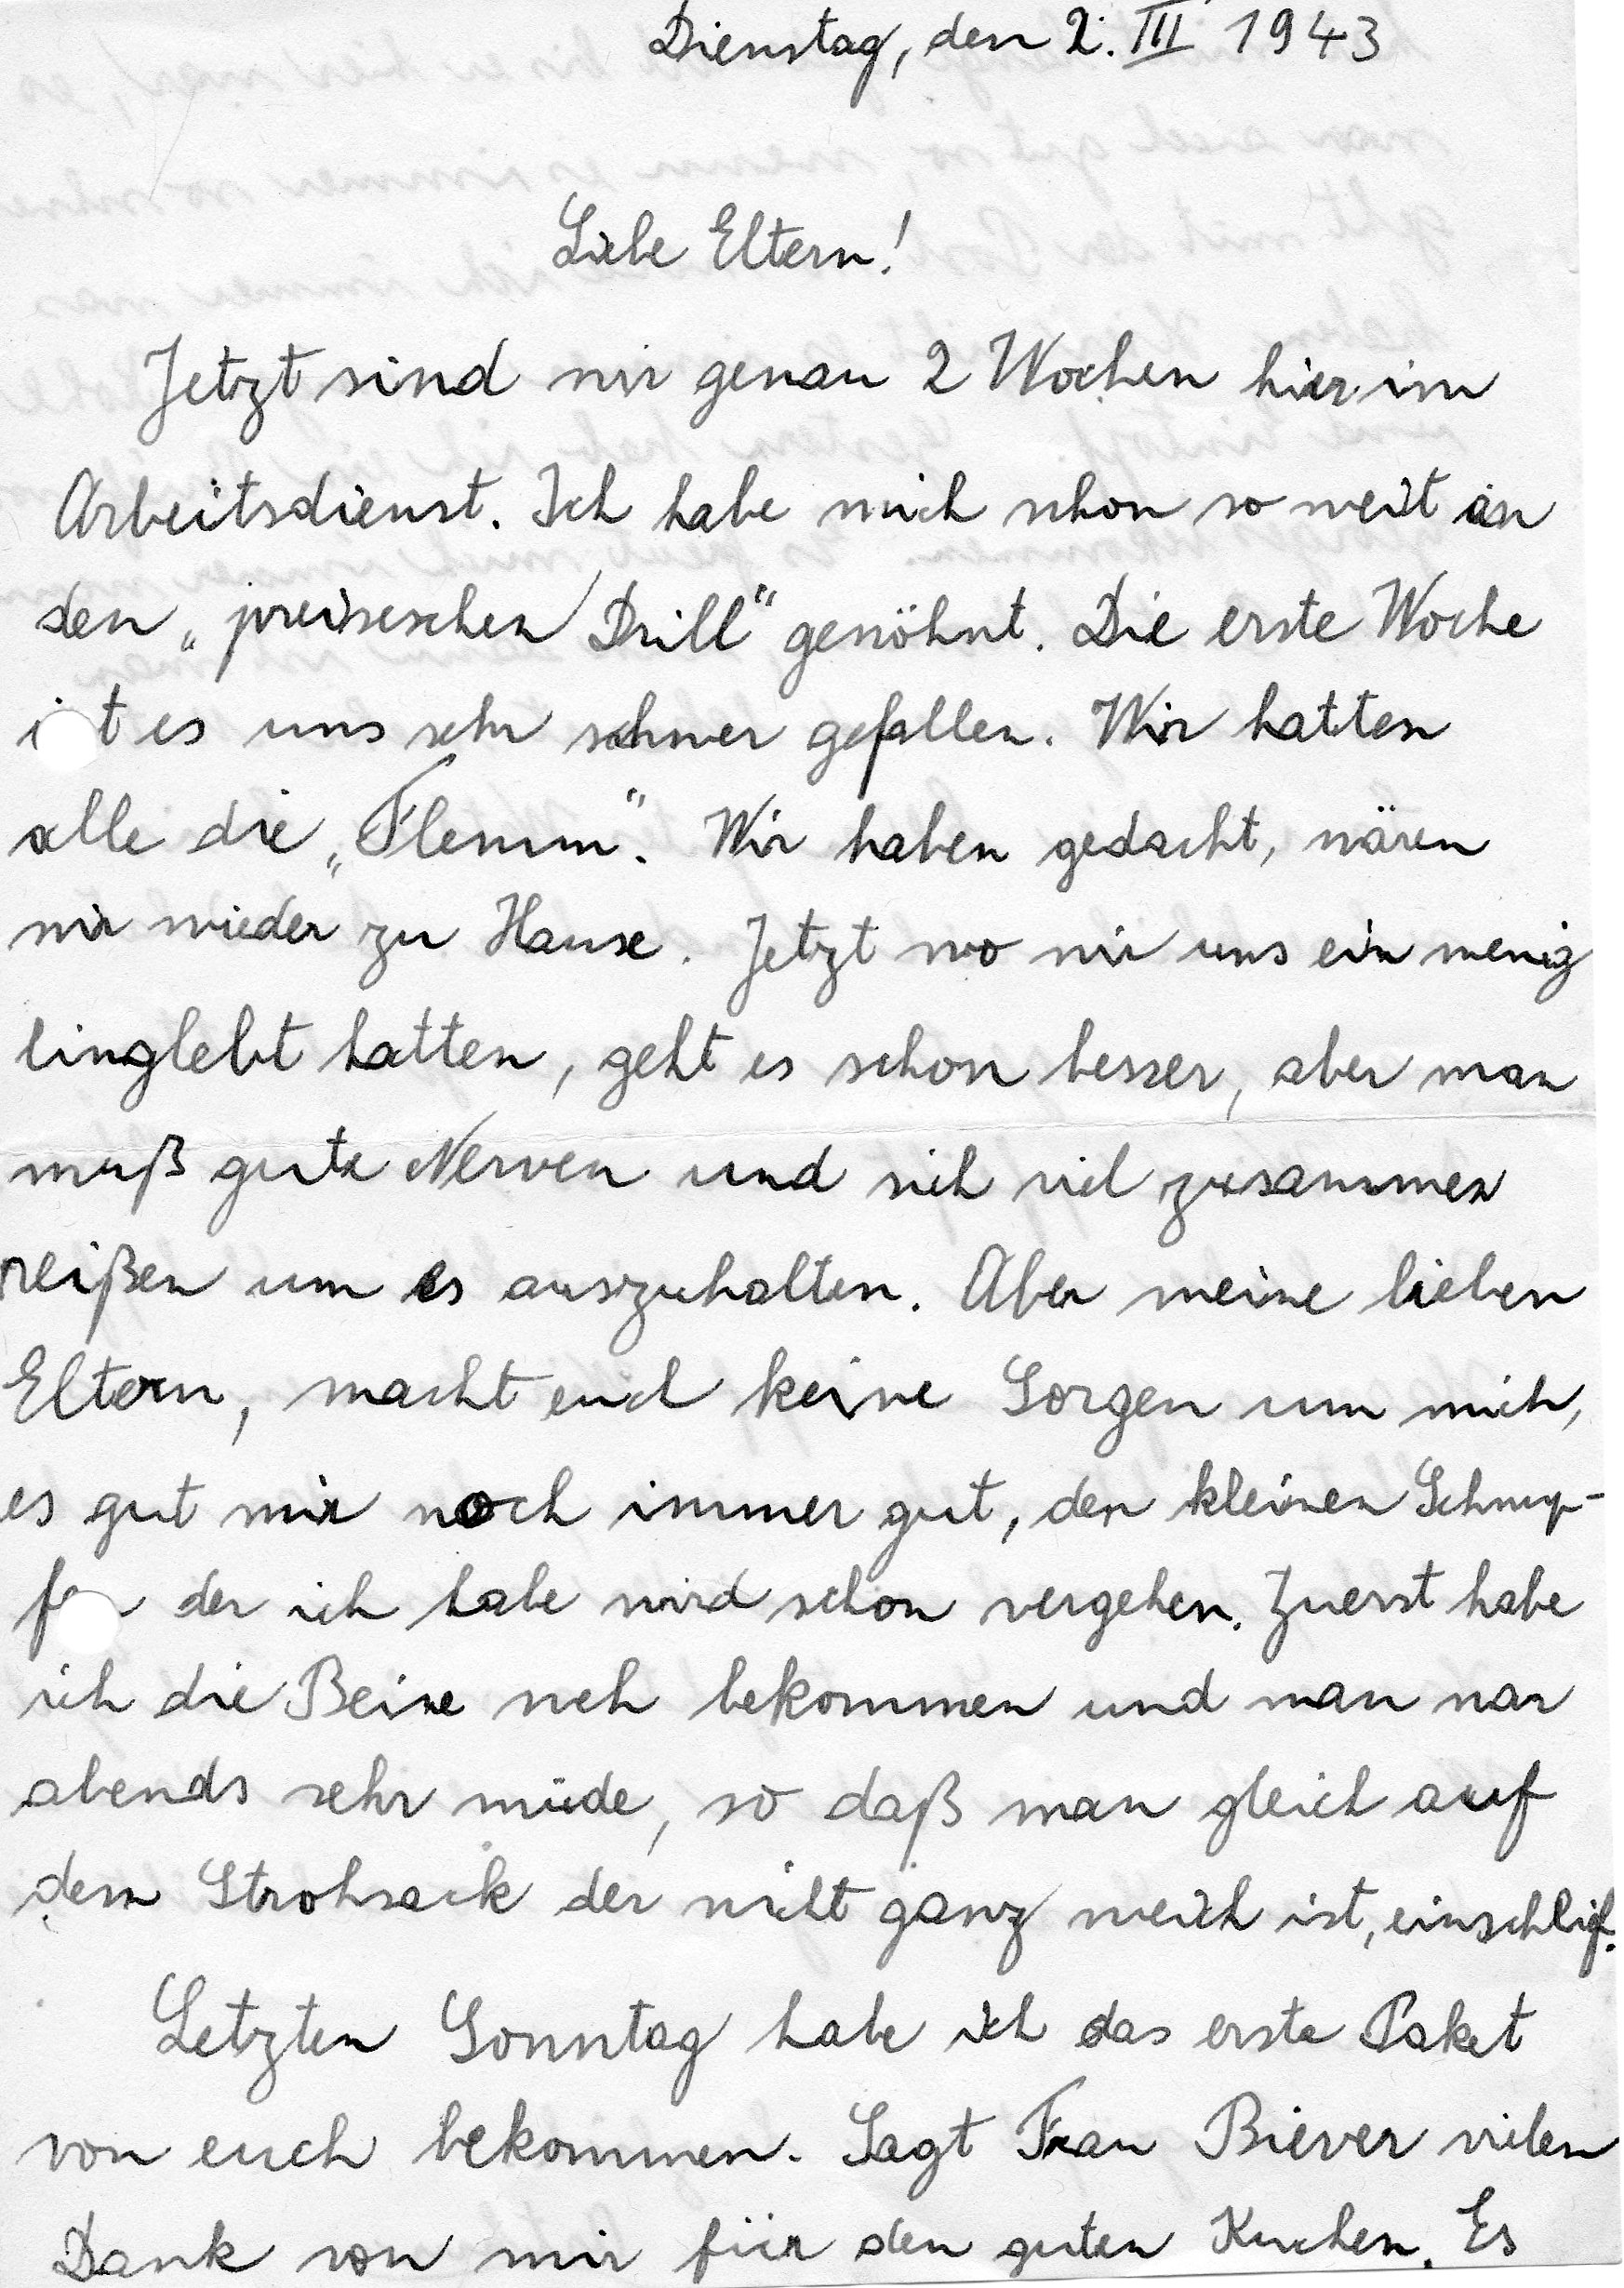 Dienstag, den 2. III 1943
Liebe Eltern!
Jetzt sind wir genau 2 Wochen hier im
Arbeitsdienst. Ich habe mich schon so weit an
den „preiseschen Drill“ gewöhnt. Die erste Woche
i t es uns sehr schwer gefallen. Wir hatten
alle die „Flemm“. Wir haben gedacht, wären
wir wieder zu Hause. Jetzt wo wir uns ein wenig
einglebt hatten, geht es schon besser, aber man
muß gute Nerven und sich viel zusammen
reißen um es auszuhalten. Aber meine lieben
Eltern, macht euch keine Sorgen um mich,
es gut mir noch immer gut, den kleinen Schnup-
fen der ich habe wird schon vergehen. Zuerst habe
ich die Beine weh bekommen und man war
abends sehr müde, so daß man gleich auf
dem Strohsack der nicht ganz weich ist, einschlif.
Letzten Sonntag habe ich das erste Paket
von euch bekommen. Sagt Frau Biever vielen
Dank von mir für den guten Kuchen. Es